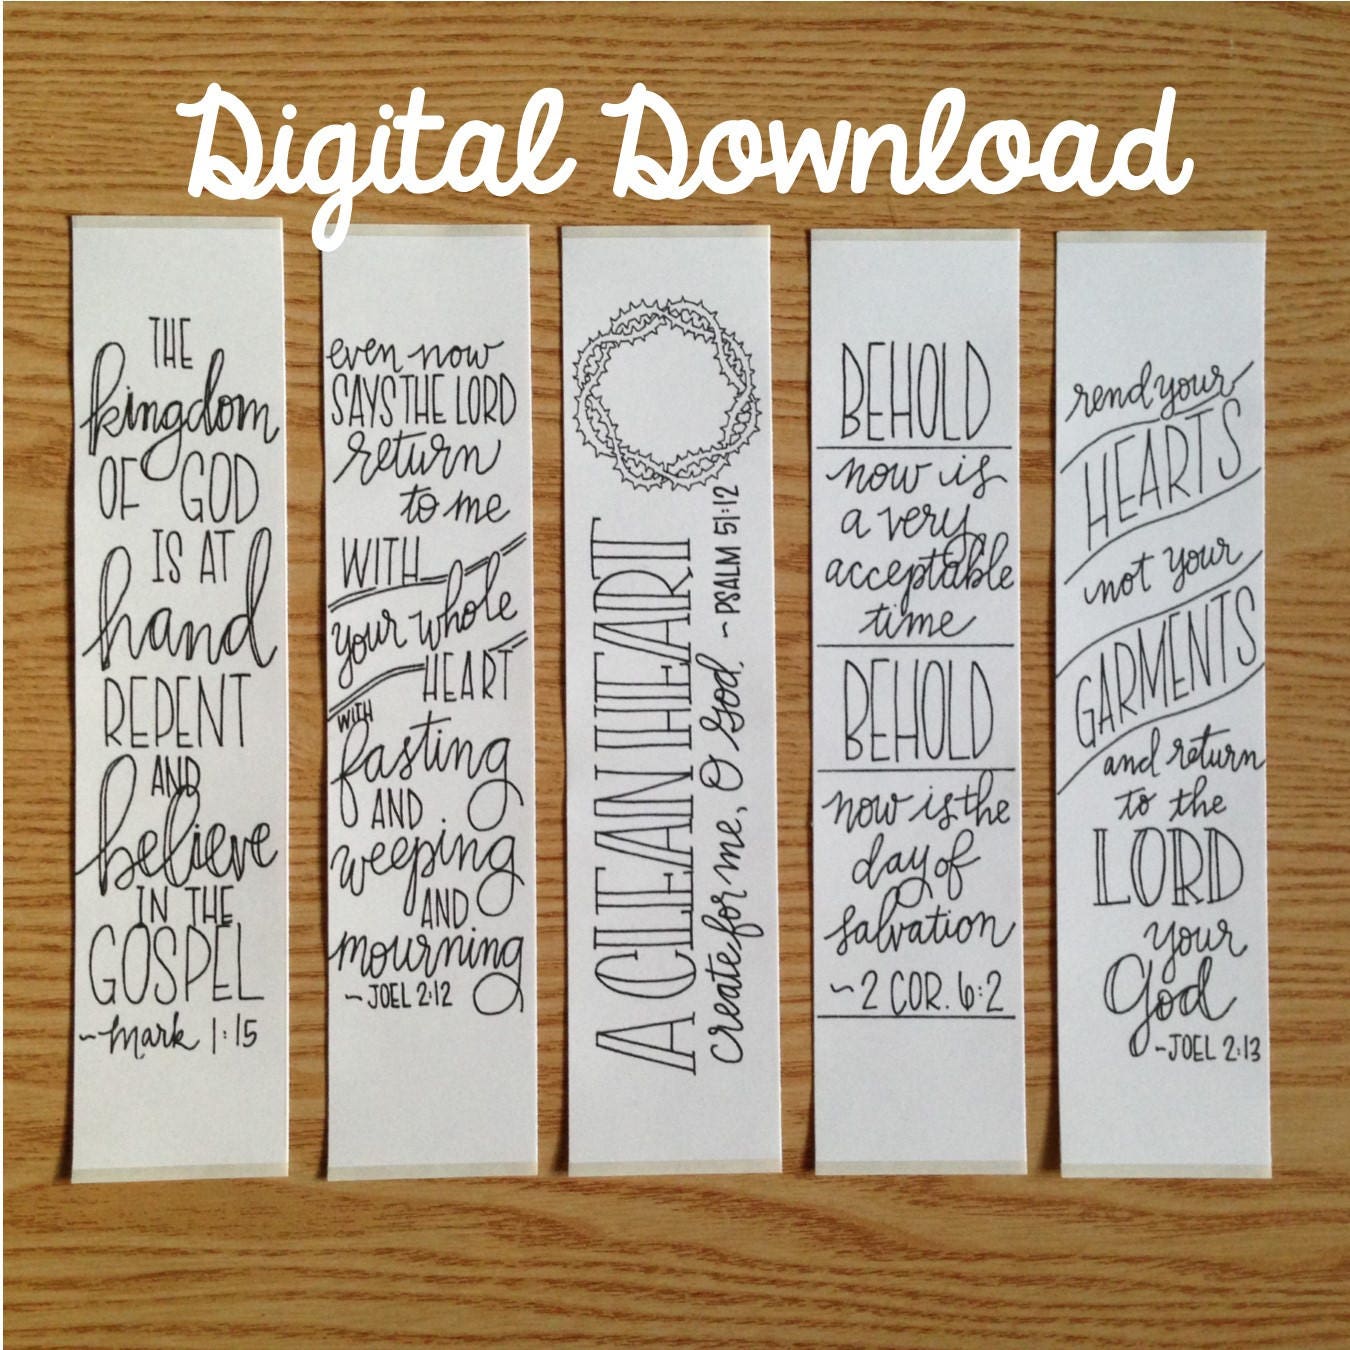 Digital Download
THE
kingdom
OF GOD
IS AT
hand
REPENT
AND
believe
IN THE
GOSPEL
~Mark 1:15
even now
SAYS THE LORD
return
to me
WITH
your whole
HEART
WITH
fasting
AND
weeping
AND
mourning
~JOEL 2:12
A CLEAN HEART
Create for me, O God. ~PSALM 51:12
BEHOLD
now is
a very
acceptable
time
BEHOLD
now is the
day of
salvation
~2 COR. 6:2
rend your
HEARTS
not your
GARMENTS
and return
to the
LORD
your
God
~JOEL 2:13